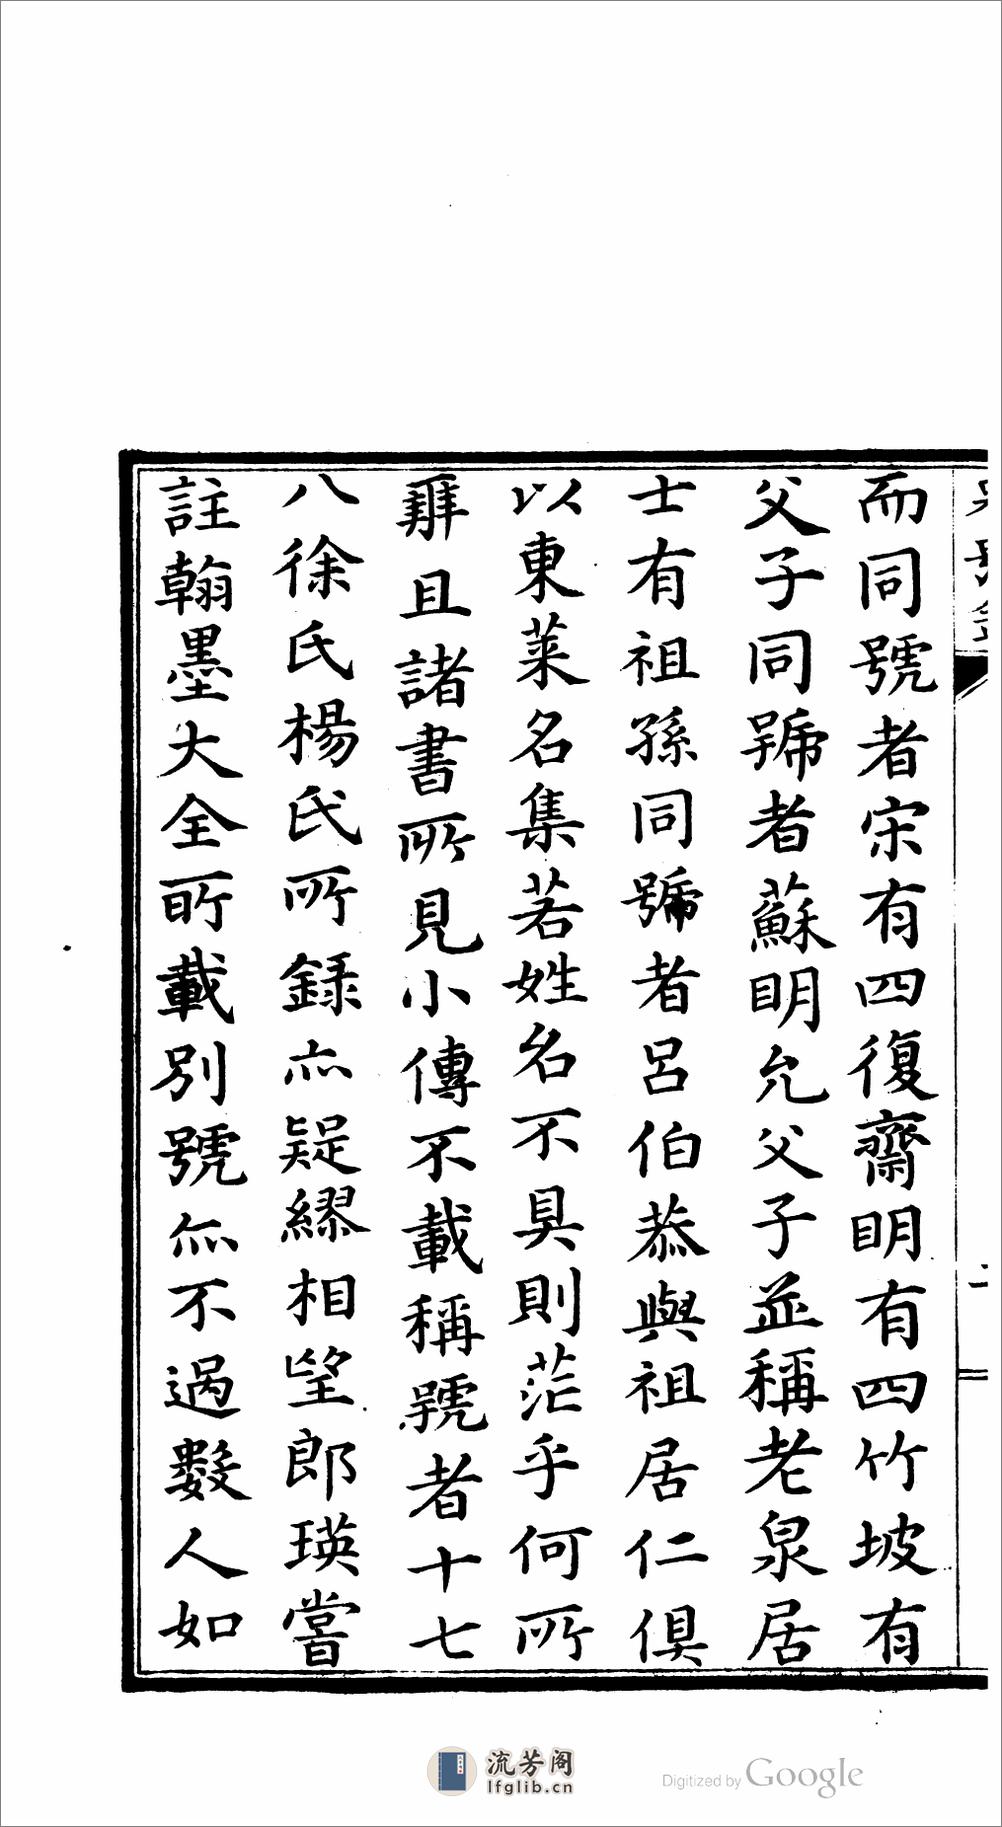 而同號者宋有四復齋明有四竹坡有
父子同號者蘇明允父子並稱老泉居
士有祖孫同號者呂伯恭與祖居仁俱
以東萊名集若姓名不具則茫乎何所
辨且諸書所見小傳不載稱號者十七
八徐氏楊氏所録亦疑繆相望郎瑛嘗
註翰墨大全所載別號亦不過數人如
流芳阁
lfglib.cn
Digitized by Google